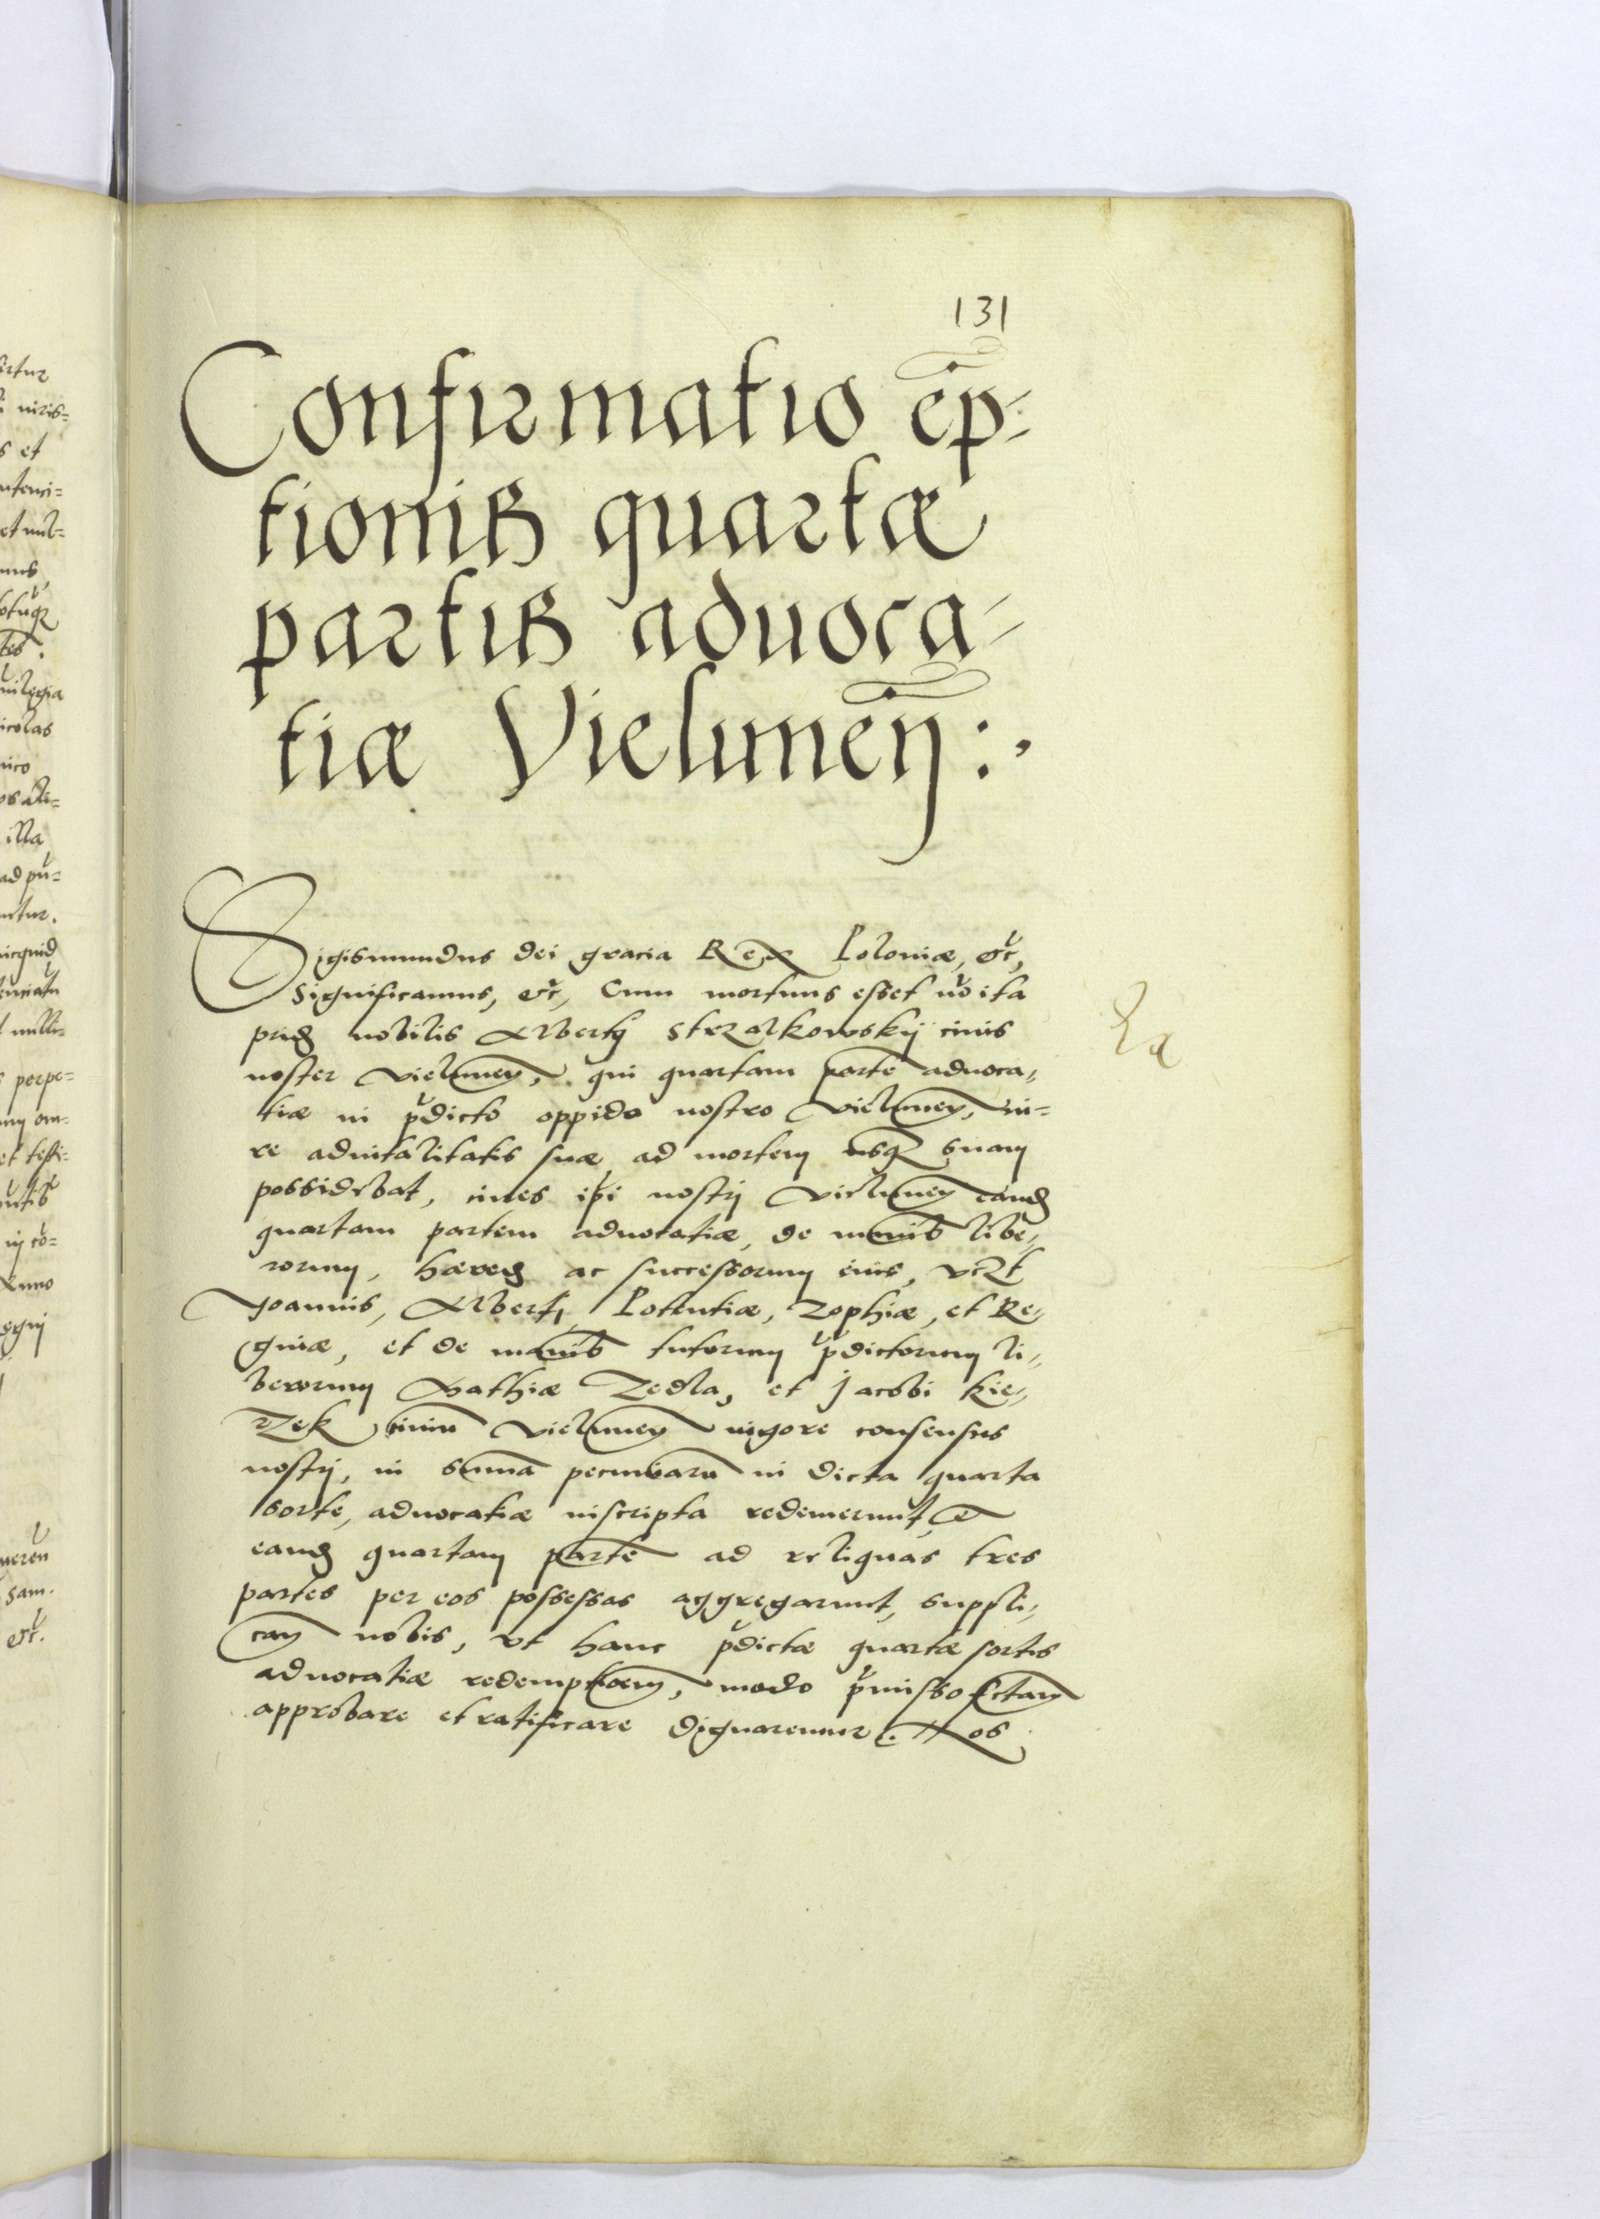 131
Confirmatio ep̄-
tionis quartæ
partis aduoca-
tiæ Vielunen̄:,
Sigismundus dei gracia Rex Poloniæ, etc̃,
Significamus, etc̃, Cum mortuus esset
nobilis Albertus Strzalkowskij ciuis
noster Vielunen̄, qui quartam partē aduoca-
tiæ in p̃dicto oppido nostro Vielunen̄, iu-
re aduitalitatis suæ, ad mortem usq3 suam
possidebat, ciues ip̃i nostrj Vielunen̄ eand
quartam partem aduocatiæ, de manib libe-
rorum, hæred ac successorum eius, vczt
Joannis, Albertj, Potentiæ, Zophiæ, et Re-
ginæ, et de manib tutorum p̃dictorum li-
berorum Mathiæ Zedla, et Jacobi Kie-
rzek ciuiū Vielunen̄ vigore consensus
nostrj, in sum̄a pecuniarū in dicta quarta
sorte, aduocatiæ inscripta redemerunt, et
eand quartam partē ad reliquas tres
partes per eos possessas aggregarunt, suppli-
can̄ nobis, vt hanc p̃dictæ quartæ sortis
aduocatiæ redemptioem̄, modo p̃misso fctam̄
approbare et ratificare dignaremur. Nos